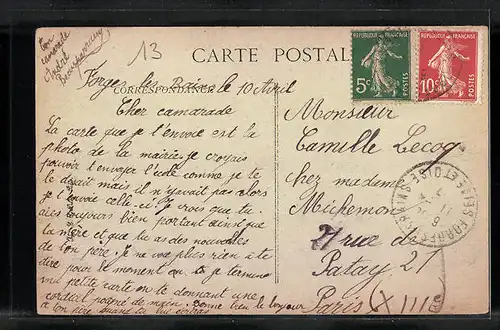 ton
camarade
André
13
CARTE POSTALE
RÉPUBLIQUE FRANÇAISE
5c
POSTES
RÉPUBLIQUE FRANÇAISE
10c
POSTES
CORRESPONDANCE
Forges les Bains le 10 Avril
Cher camarade
La carte que je t'envoie est la
photo de la mairie je croyais
pouvoir t'envoyer l'école comme je te
le disait mais il n'y avait pas alors
je t'envoie celle-ci. Je crois que tu
aies toujours bien portant ainsi que
ta mère et que tu as des nouvelles
de ton père. Je ne vois plus rien à te
dire pour le moment je termine
ma petite carte en te donnant une
cordial pogné de main. Donne bien le bonjour
a ton père quand tu lui
Monsieur
Camille Lecoq
chez madame
Michemon
21 rue de
Patay 21
Paris (XIII)